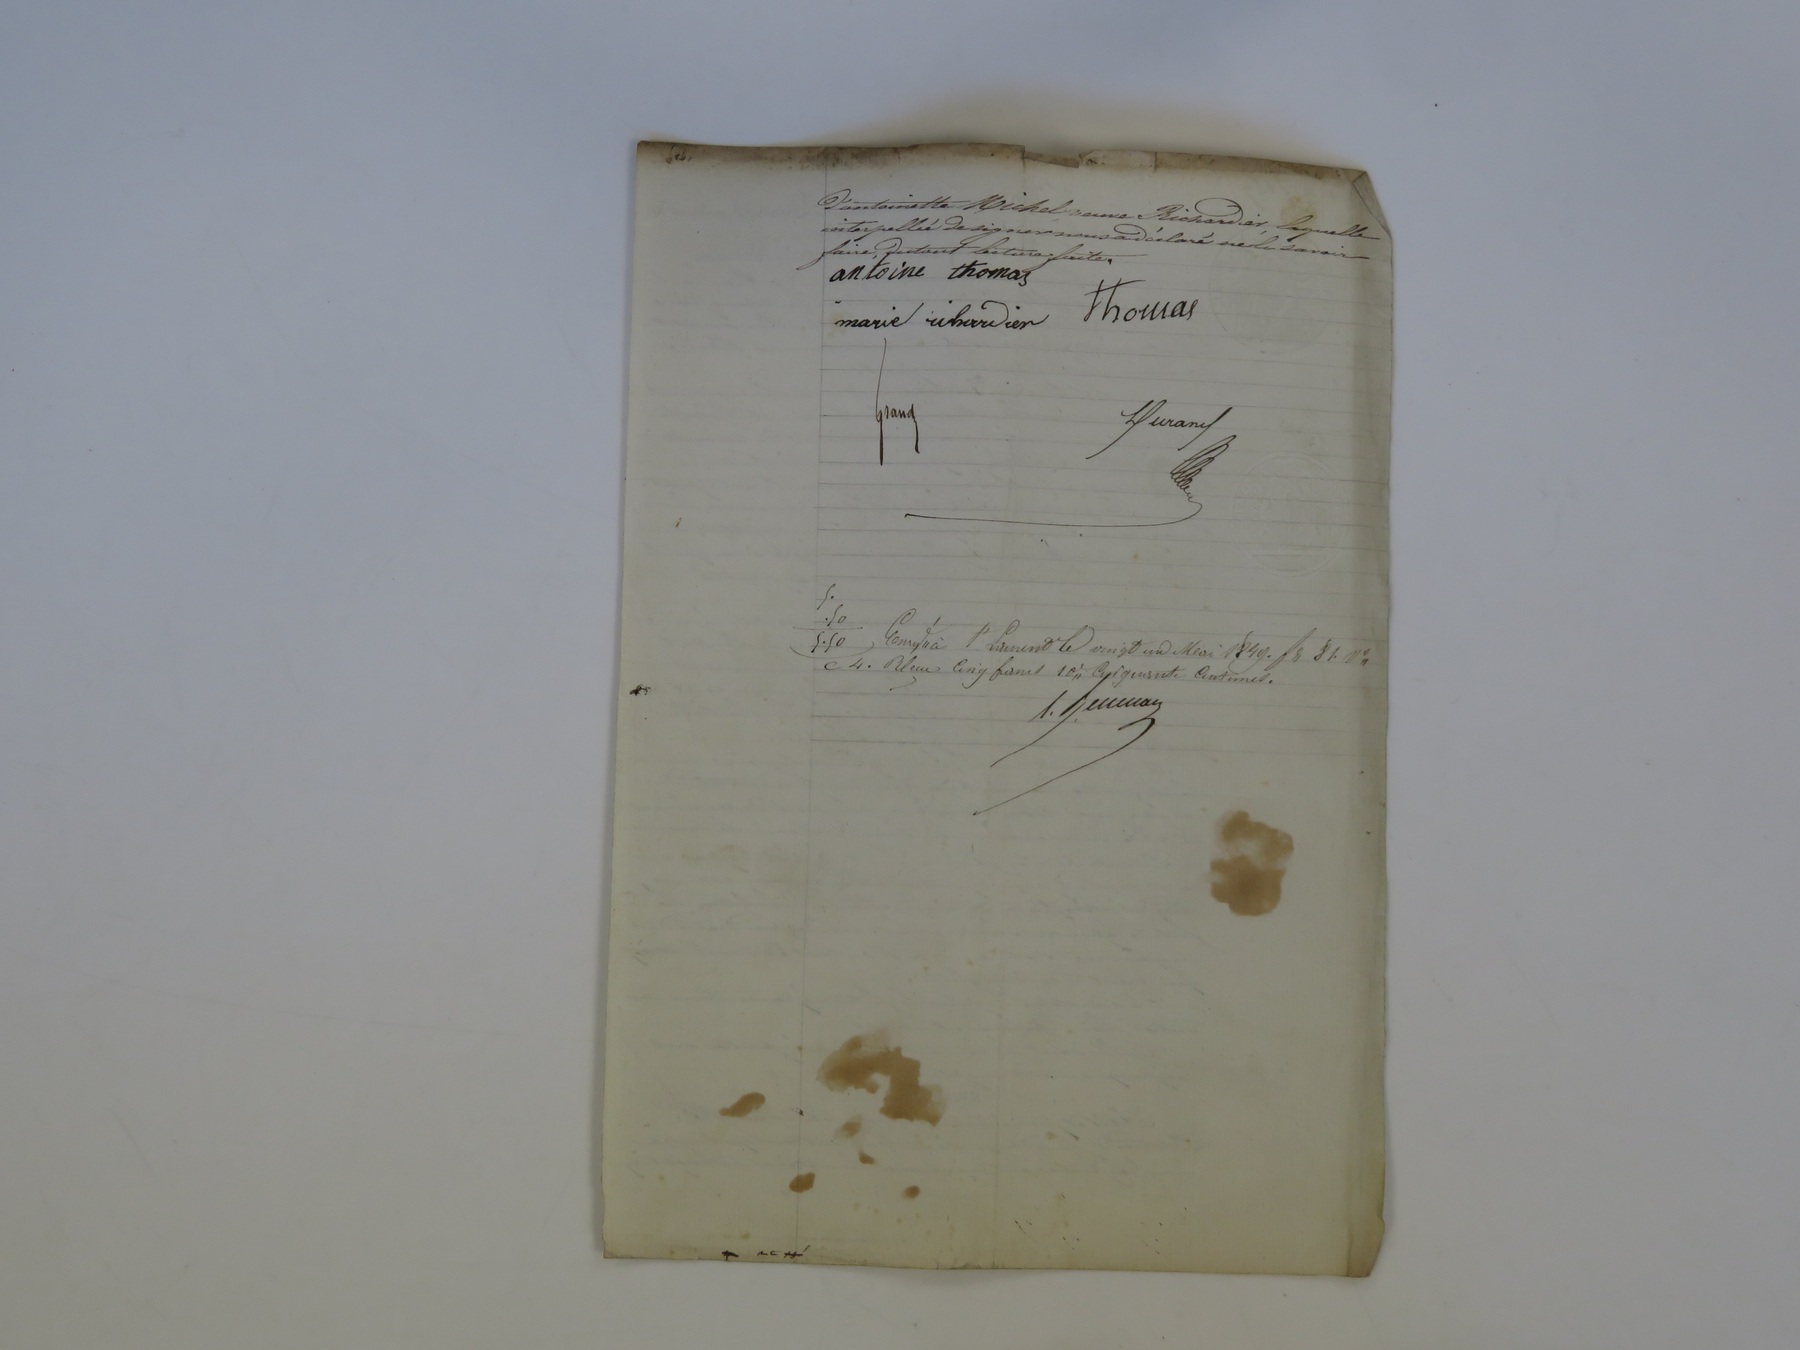 d'antoinette Michel veuve Richardier, laquelle
interpellée de signer nous a déclaré ne le savoir
faire, du tout lecture faite.
antoine thomas
marie richardier thomas
grand
Durand
5.
.50
5.50
Enregtré à St Laurent le vingt un Mai 1849. fo 81. Vo
c 4. Reçu Cinq francs 10e Cinquante Centimes.